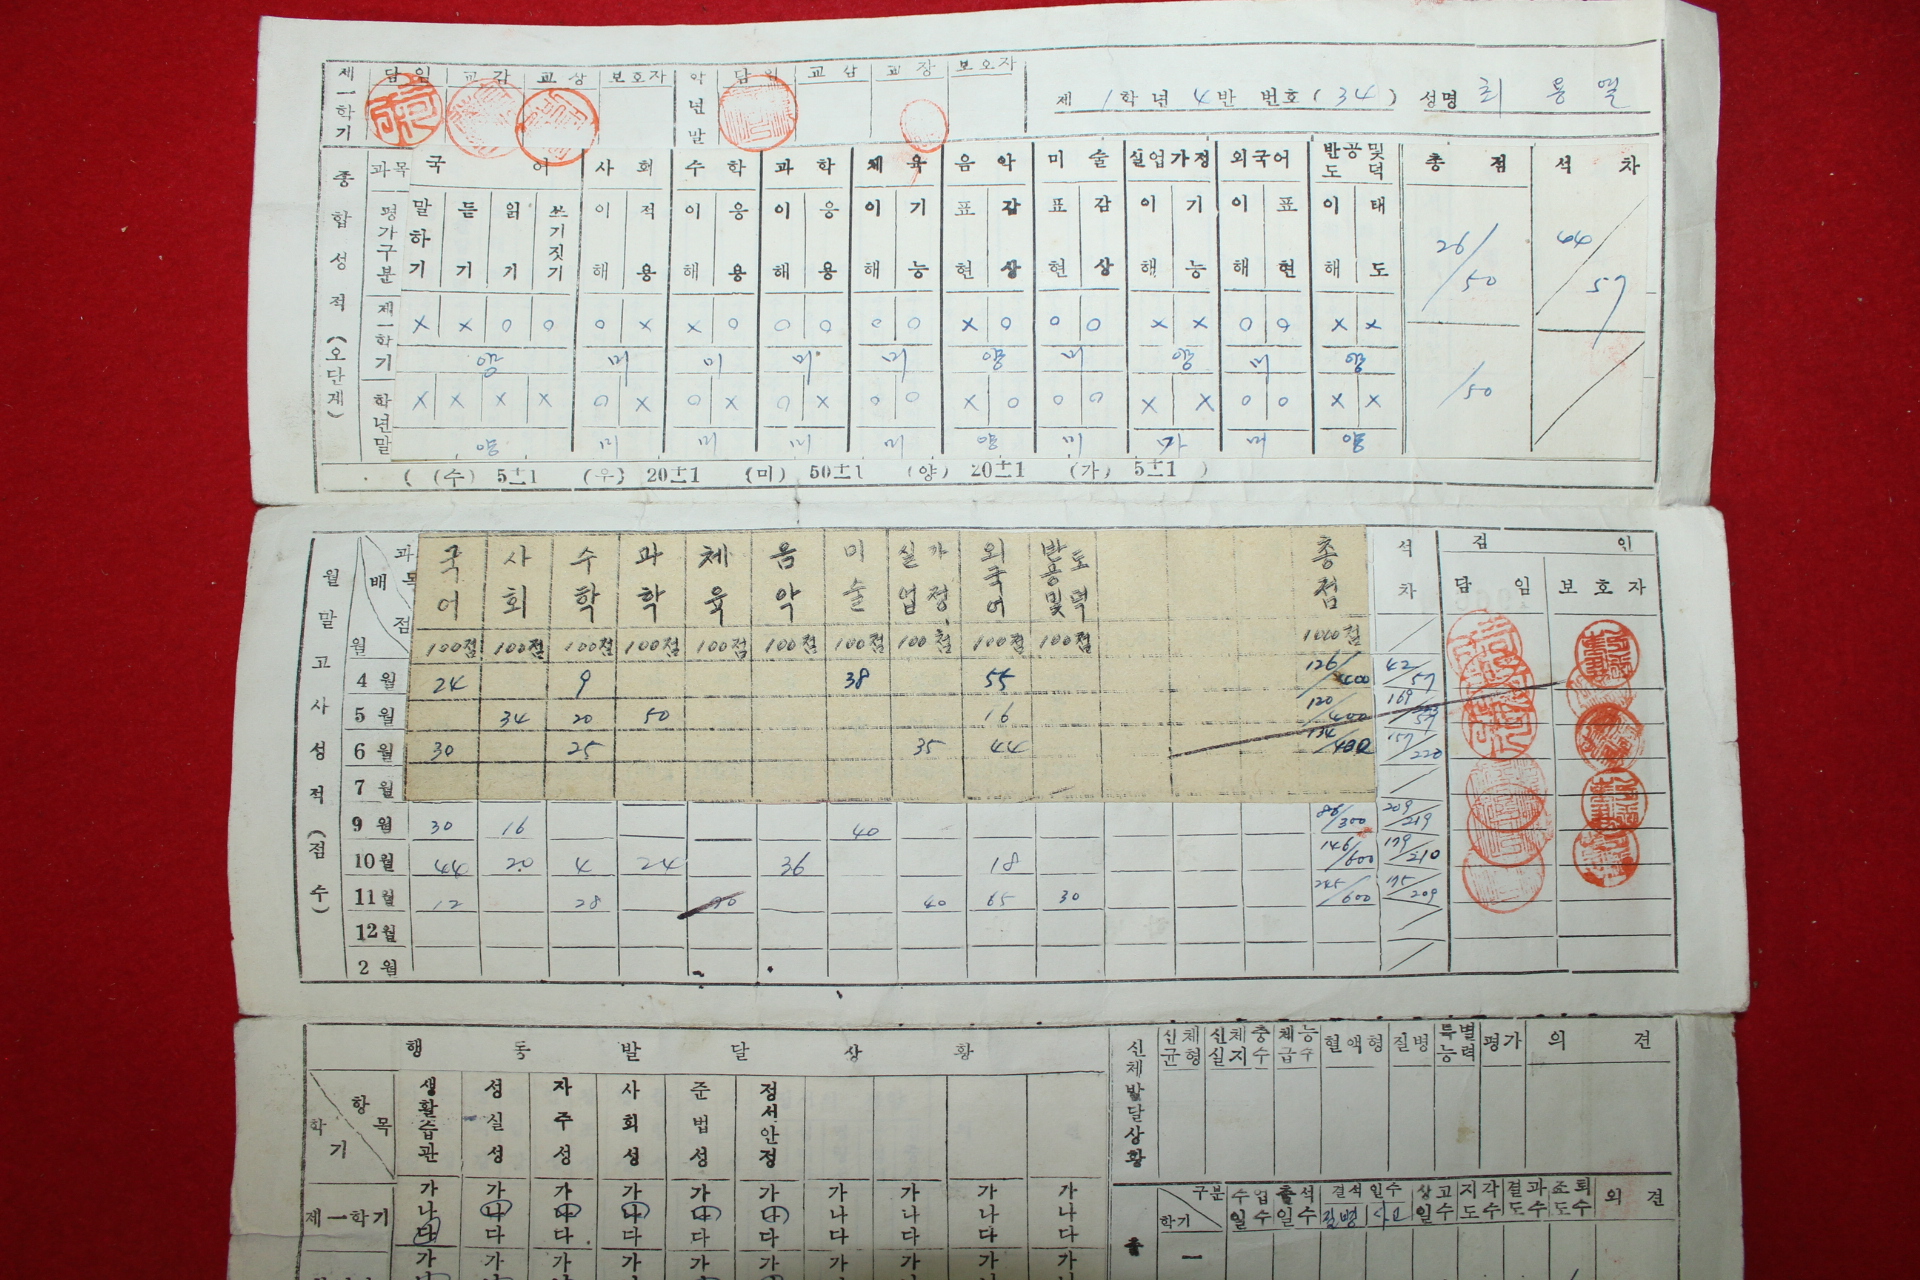 제一학기 담임 교감 교장 보호자 학년말 담임 교감 교장 보호자
제 1 학년 4 반 번호 (34) 성명 최 용 열
종합성적(오단계)
과목 국어 사회 수학 과학 체육 음악 미술 실업가정 외국어 반공및도덕 총점 석차
평가구분 말하기 듣기 읽기 쓰기짓기 이해 적용 이해 응용 이해 응용 이해 기능 표현 감상 표현 감상 이해 기능 이해 표현 이해 태도
제一학기 × × ○ ○ ○ × × ○ ○ ○ ○ ○ × ○ ○ ○ × × ○ ○ × × 26/50 44/57
양 미 미 미 미 양 미 양 미 양
학년말 × × × × ○ × ○ × ○ × ○ ○ × ○ ○ ○ × × ○ ○ × × /50
양 미 미 미 미 양 미 가 미 양
( (수) 5±1 (우) 20±1 (미) 50±1 (양) 20±1 (가) 5±1 )
월말고사성적(점수)
과목 배점 월 국어 사회 수학 과학 체육 음악 미술 실업가정 외국어 반공및도덕 총점 석차 검인
담임 보호자
100점 100점 100점 100점 100점 100점 100점 100점 100점 100점 1000점
4월 24 9 38 55 126/400 42/57
5월 34 20 50 16 120/400 169
6월 30 25 35 44 134/400 157/220
7월
9월 30 16 40 86/300 209/219
10월 44 20 4 24 36 18 146/600 179/210
11월 12 28 70 40 65 30 245/600 175/209
12월
2월
행동발달상황
항목 학기 생활습관 성실성 자주성 사회성 준법성 정서안정
제一학기 가나다 가나다 가나다 가나다 가나다 가나다 가나다 가나다 가나다 가나다
가 가 가 가 가 가 가 가 가 가
신체발달상황 신체균형 신체충실지수 체능급수 혈액형 질병 특별능력 평가 의견
구분 학기 수업일수 출석일수 결석일수 질병 사고 상고일수 지각도수 결과도수 조퇴도수 의견
출
一